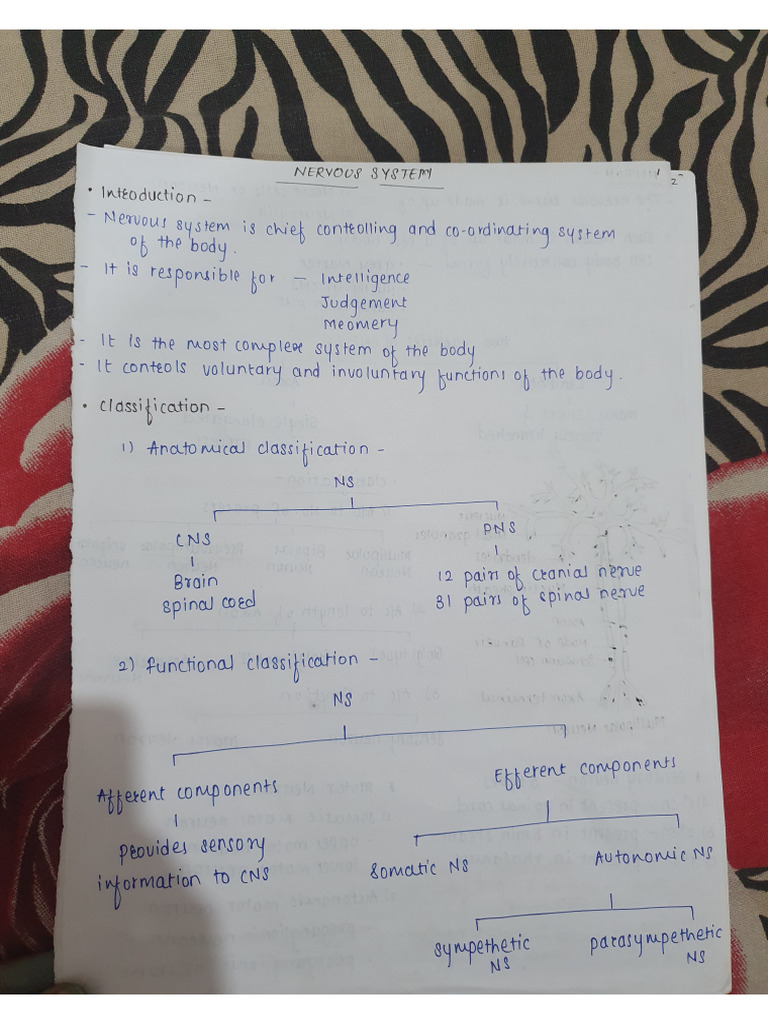 NERVOUS SYSTEM
• Introduction -
- Nervous system is chief controlling and co-ordinating system
of the body.
- It is responsible for — Intelligence
Judgement
Meomery
- It is the most complex system of the body
- It controls voluntary and involuntary functions of the body.
• Classification -
1) Anatomical classification -
NS
CNS PNS
Brain 12 pairs of cranial nerve
spinal cord 31 pairs of spinal nerve
2) Functional classification -
NS
Afferent components Efferent components
provides sensory
information to CNS
Somatic NS Autonomic NS
sympethetic parasympethetic
NS NS